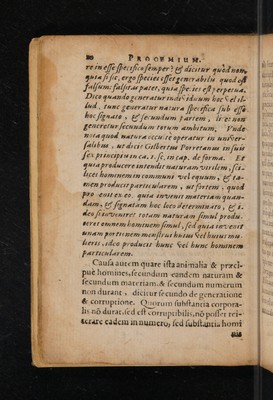 20 PROOEMIUM.
re in esse specifico semper? & dicitur quòd non,
quia si sic, ergo species esset generabilis quod est
falsum: falsitas patet, quia species est perpetua.
Dico quando generatur individuum hoc vel il-
lud, tunc generatur natura specifica sub esse
hoc signato, & secundum partem, licet non
generetur secundum totum ambitum, Vnde
nota quod natura occulte operatur in univer-
salibus, ut dicit Gilbertus Porretanus in suis
sex principiis in ca. 1. sc. in cap. de forma. Et
quia producere intendit naturam virilem, sci-
licet hominem in communi vel equum, & ta-
men producit particularem, ut fortem, quod
pro est ex eo quia invenit materiam quan-
dam, & signatam hoc loco determinato, & i-
deo si inveniret totam naturam simul produ-
ceret omnem hominem simul, sed quia invenit
unam portionem menstrui huius vel huius mu-
lieris, ideo producit hunc vel hunc hominem
particularem.
Causa autem quare ista animalia & præci-
puè homines, secundum eandem naturam &
secundum materiam & secundum numerum
non durant, dicitur secundo de generatione
& corruptione. Quorum substantia corpora-
lis nō durat, sed est corruptibilis, nō posset rei-
terare eadem in numero, sed substantia homi
nis